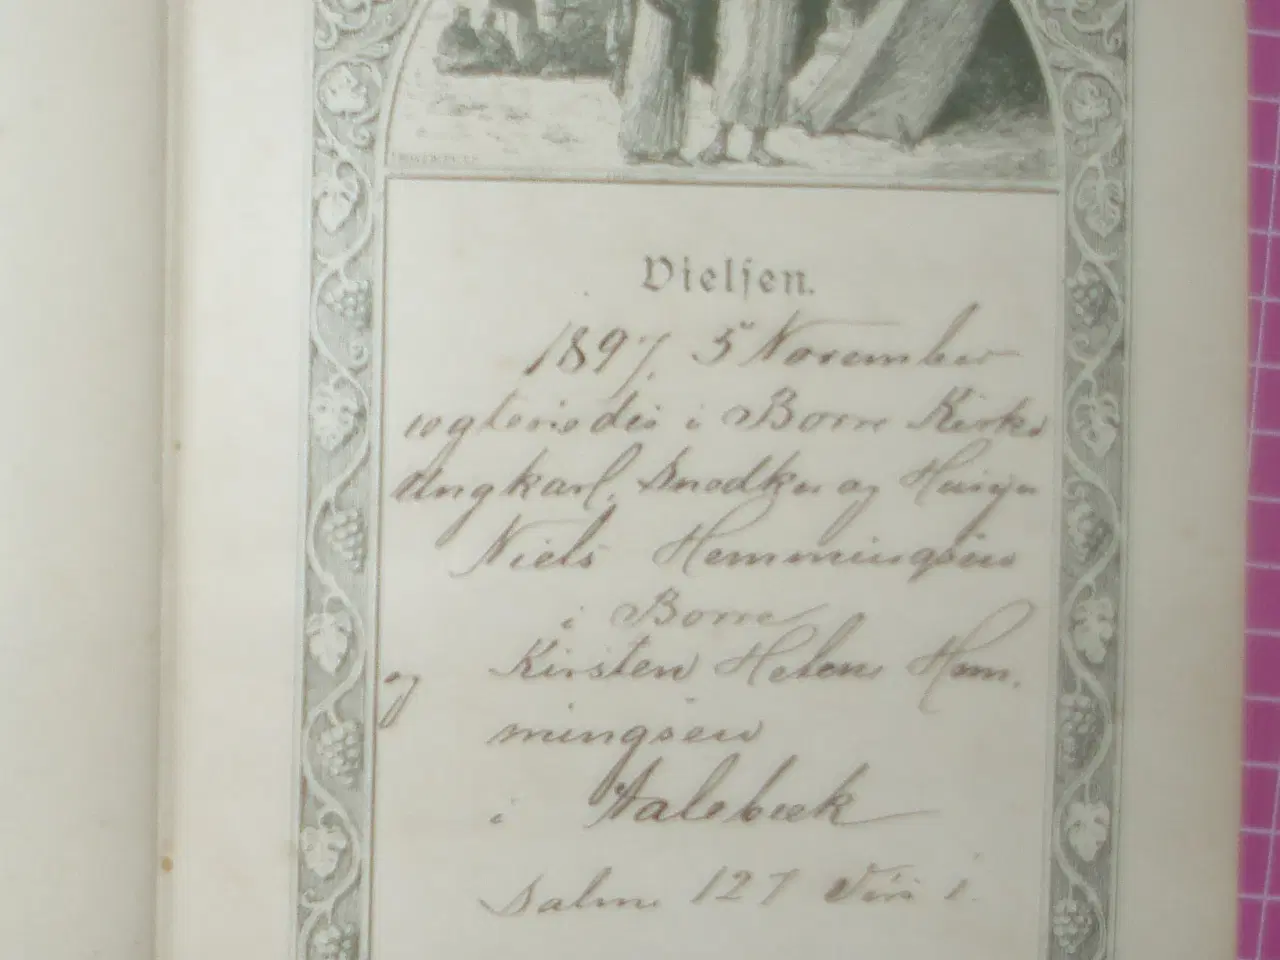 Vielsen.
1897, 5 November
i Borre Kirke
Ungkarl, Snedker og
Niels Hemmingsen
i Borre
og Kirsten Helene Hem-
mingsen
i Aalebæk
Salme 127 Vers 1.